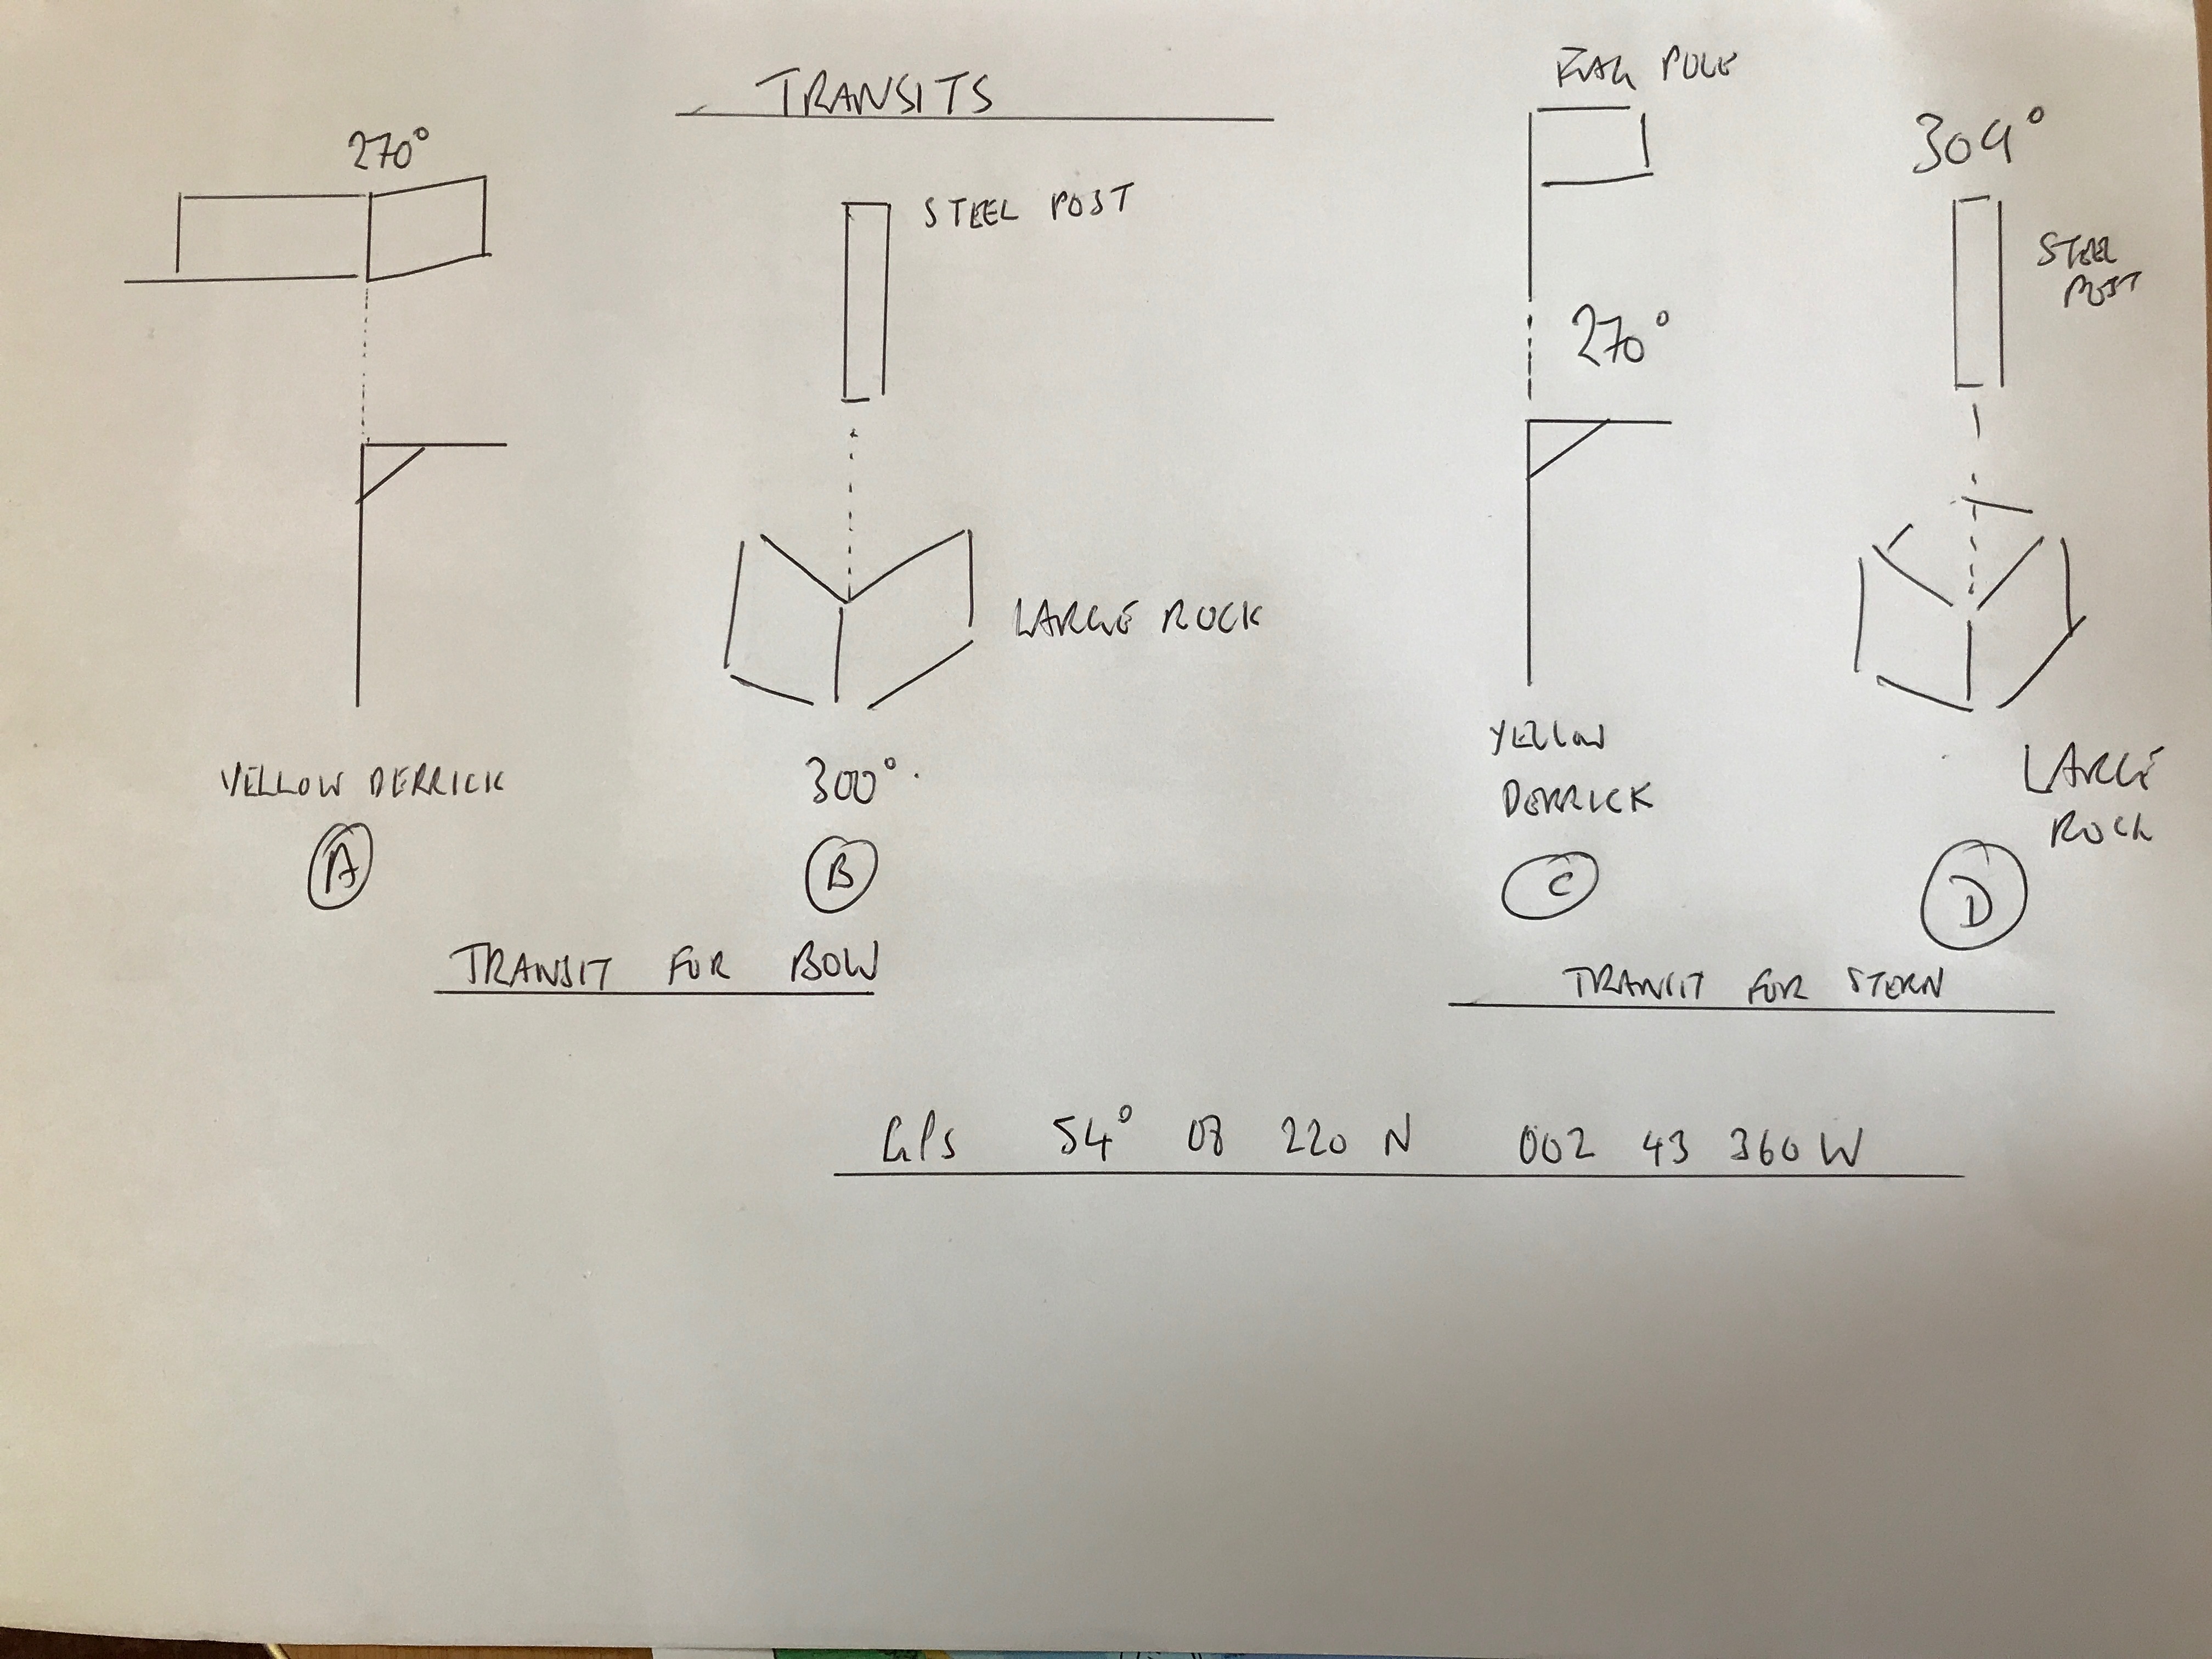 TRANSITS
270°
YELLOW DERRICK
A
STEEL POST
LARGE ROCK
300°.
B
TRANSIT FOR BOW
FLAG POLE
270°
YELLOW
DERRICK
C
309°
STEEL
POST
LARGE
ROCK
D
TRANSIT FOR STERN
GPS 54° 08 220 N 002 43 360 W